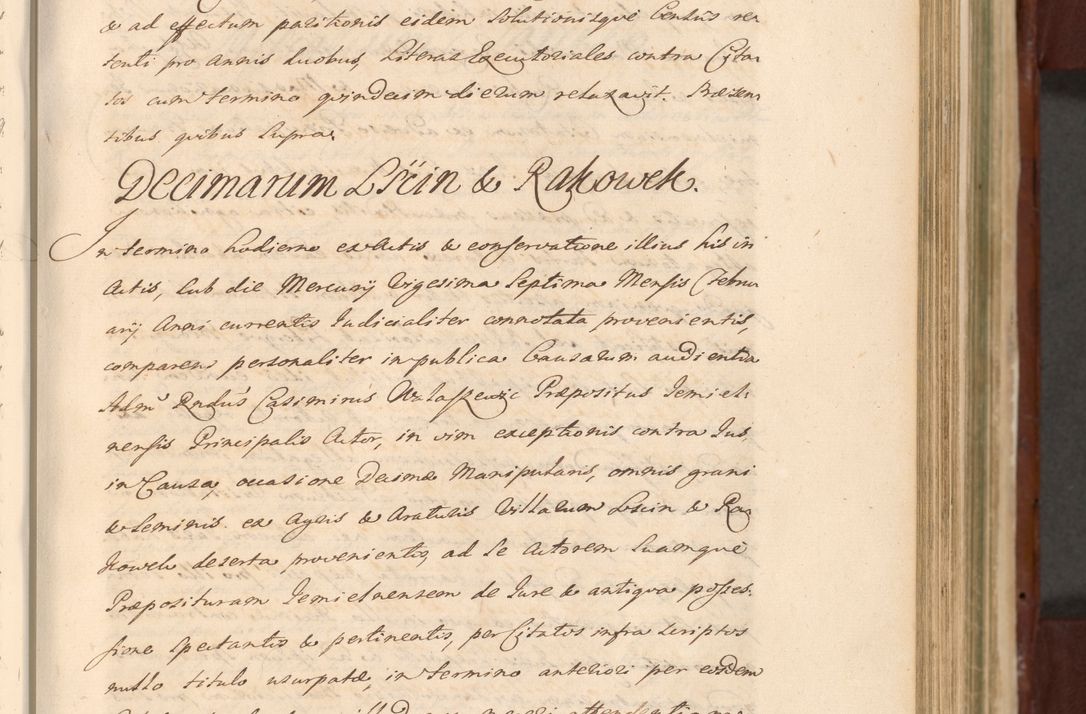 & ad effectum paritionis eidem Solutionisque Census re,
tenti pro Annis duobus, Literas Executoriales contra Cita,
tos cum termino quindecim dierum relaxavit. Præsen,
tibus quibus Supra.
Decimarum Lścin & Rakowek.
In termino hodierno ex Actis & conservatione illius his in
Actis, Sub die Mercurij Vigesima Septima Mensis Febru
arij Anni currentis Judicialiter connotata provenientis,
comparens personaliter in publica Causarum audientia
Adm. Rndus Casimirus Præpositus Jemiel,
nensis Principalis Actor, in vim exceptionis contra Jus,
in Causa, occasione Decimæ Manipularis, omnis grani
& Seminis ex Agris & Araturis Villarum Lscin & Ra,
kowek deserta provenientis, ad Se Actorem Suamque
Præposituram Jemielnensem de Jure & antiqua posses,
sione Spectantis & pertinentis, per Citatos infra Scriptos
nullo titulo usurpatæ, in termino anteriori per eosdem